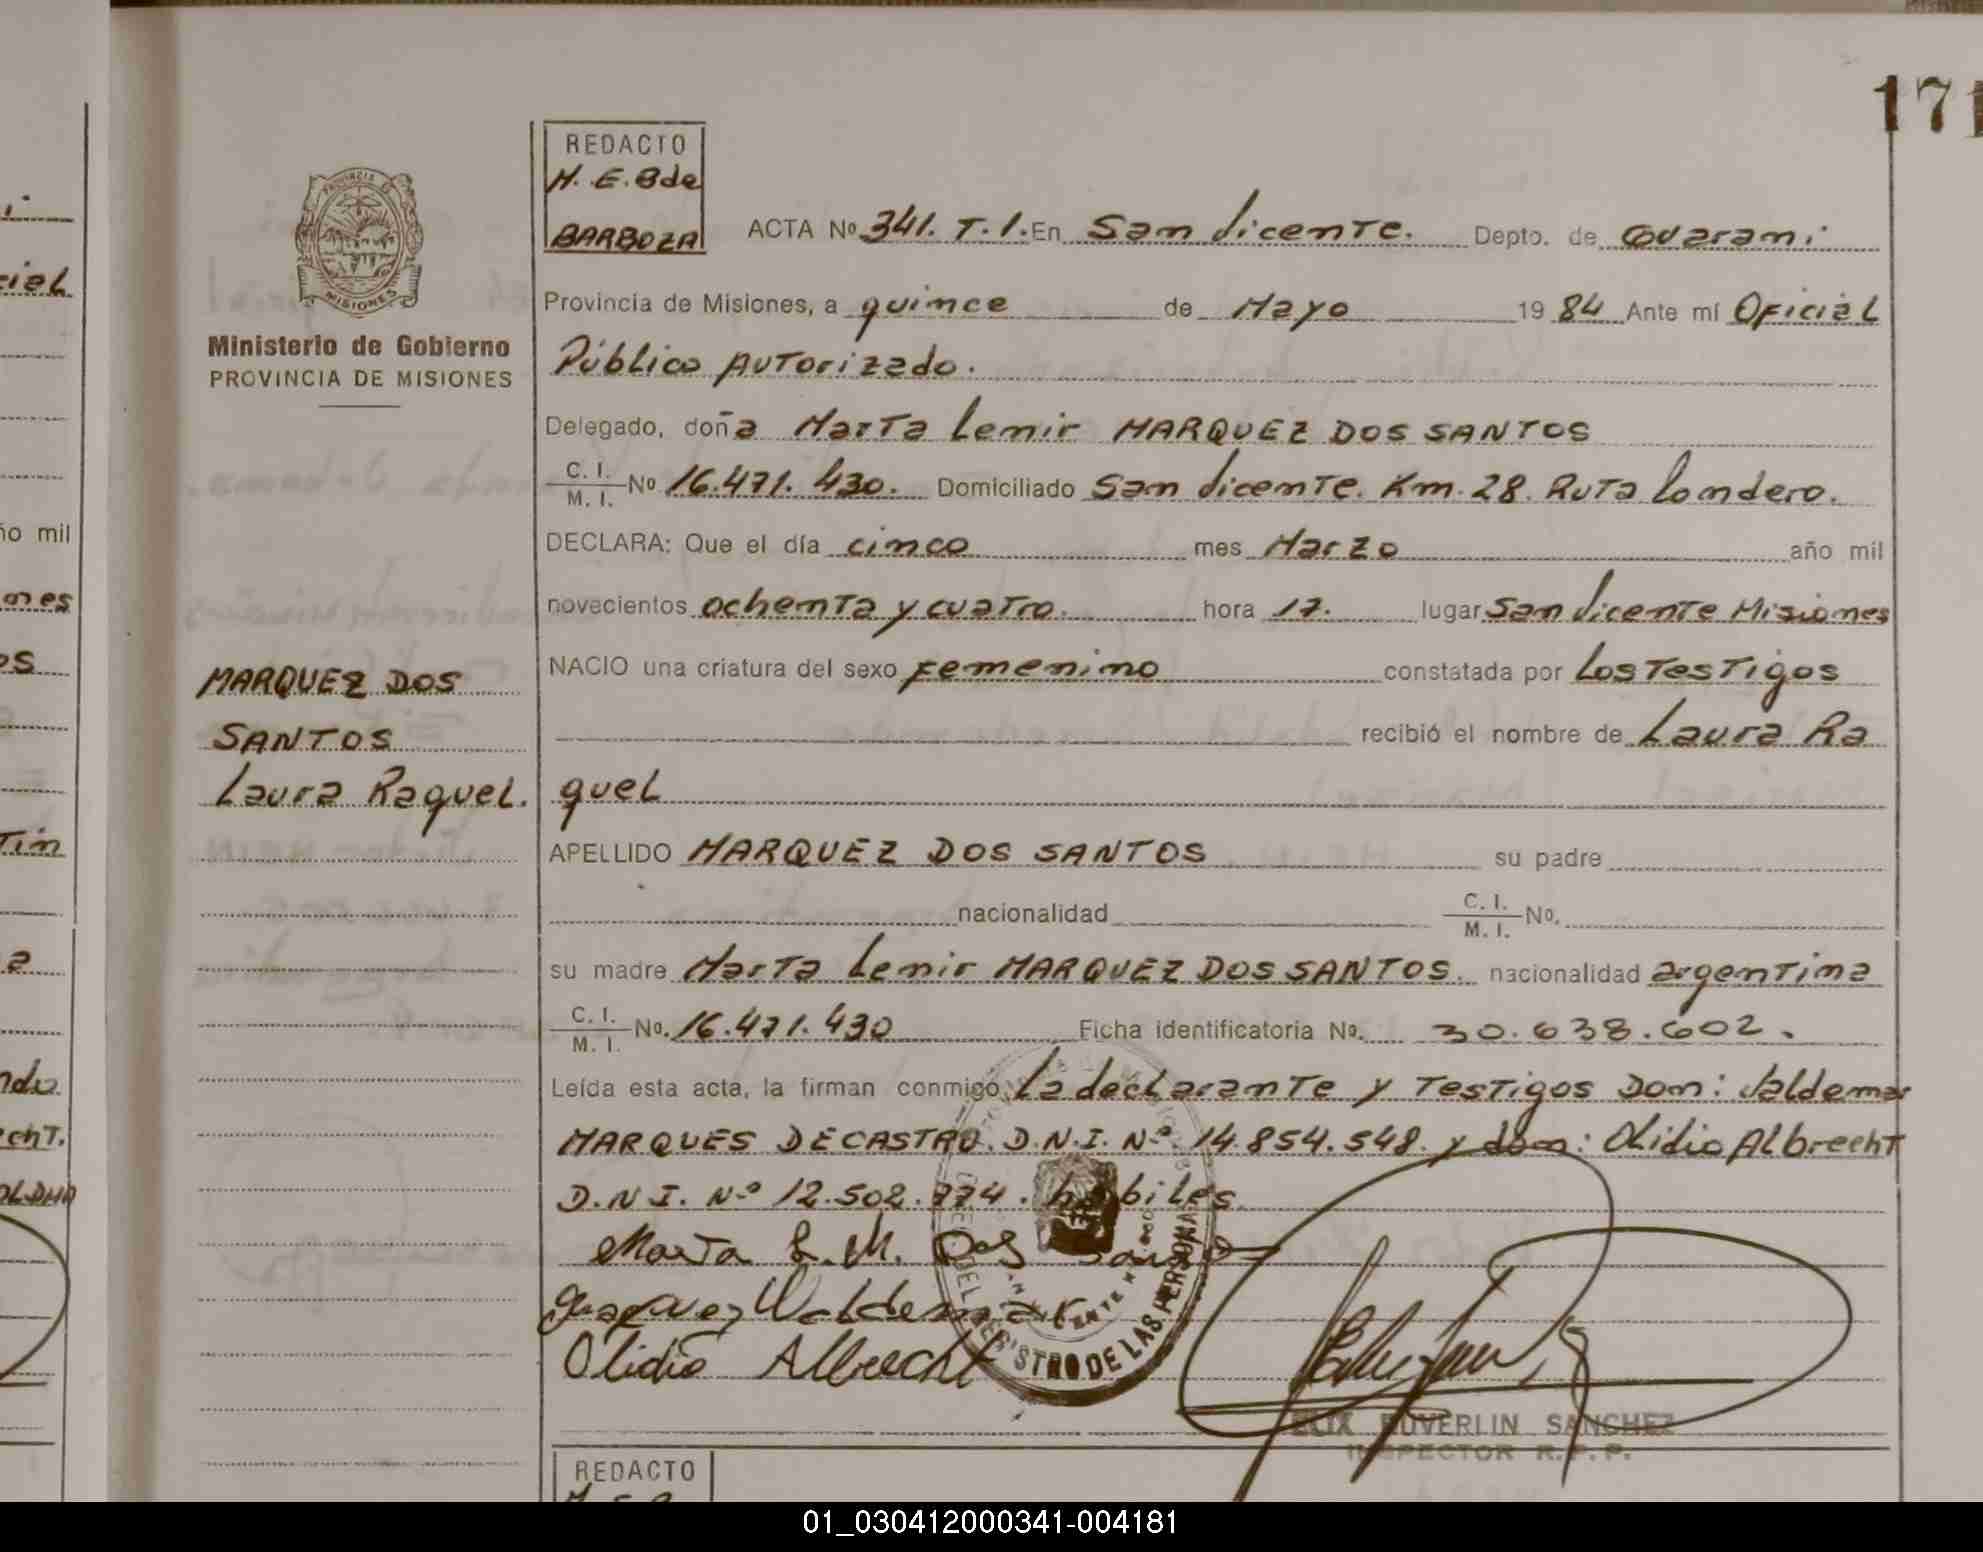 171
REDACTO
M. E. B de
BARBOZA
PROVINCIA DE
MISIONES
Ministerio de Gobierno
PROVINCIA DE MISIONES
ACTA No 341. T. 1. En San Vicente. Depto. de Guarani
Provincia de Misiones, a quince de Mayo 19 84 Ante mí Oficial
Público Autorizado.
Delegado, doña Marta Lemir MARQUEZ DOS SANTOS
C. I. / M. I. No 16.471.430. Domiciliado San Vicente. Km. 28. Ruta Londero.
DECLARA: Que el día cinco mes Marzo año mil
novecientos ochenta y cuatro. hora 17. lugar San Vicente Misiones
NACIO una criatura del sexo femenino constatada por Los Testigos
recibió el nombre de Laura Ra
quel
APELLIDO MARQUEZ DOS SANTOS su padre
nacionalidad C. I. / M. I. No.
su madre Marta Lemir MARQUEZ DOS SANTOS. nacionalidad argentina
C. I. / M. I. No. 16.471.430 Ficha identificatoria No. 30.638.602.
Leída esta acta, la firman conmigo, La declarante y Testigos Don: Valdemar
MARQUES DECASTRO. D.N.I. Nº 14.854.548. y don: Olidio Albrecht
D.N.I. Nº 12.502.774. hábiles.
Marta L. M. Dos Santos
Marquez Valdemar
Olidio Albrecht
MARQUEZ DOS
SANTOS
Laura Raquel.
REGISTRO DE LAS PERSONAS
FELIX BUVERLIN SANCHEZ
INSPECTOR R. P. P.
REDACTO
01_030412000341-004181